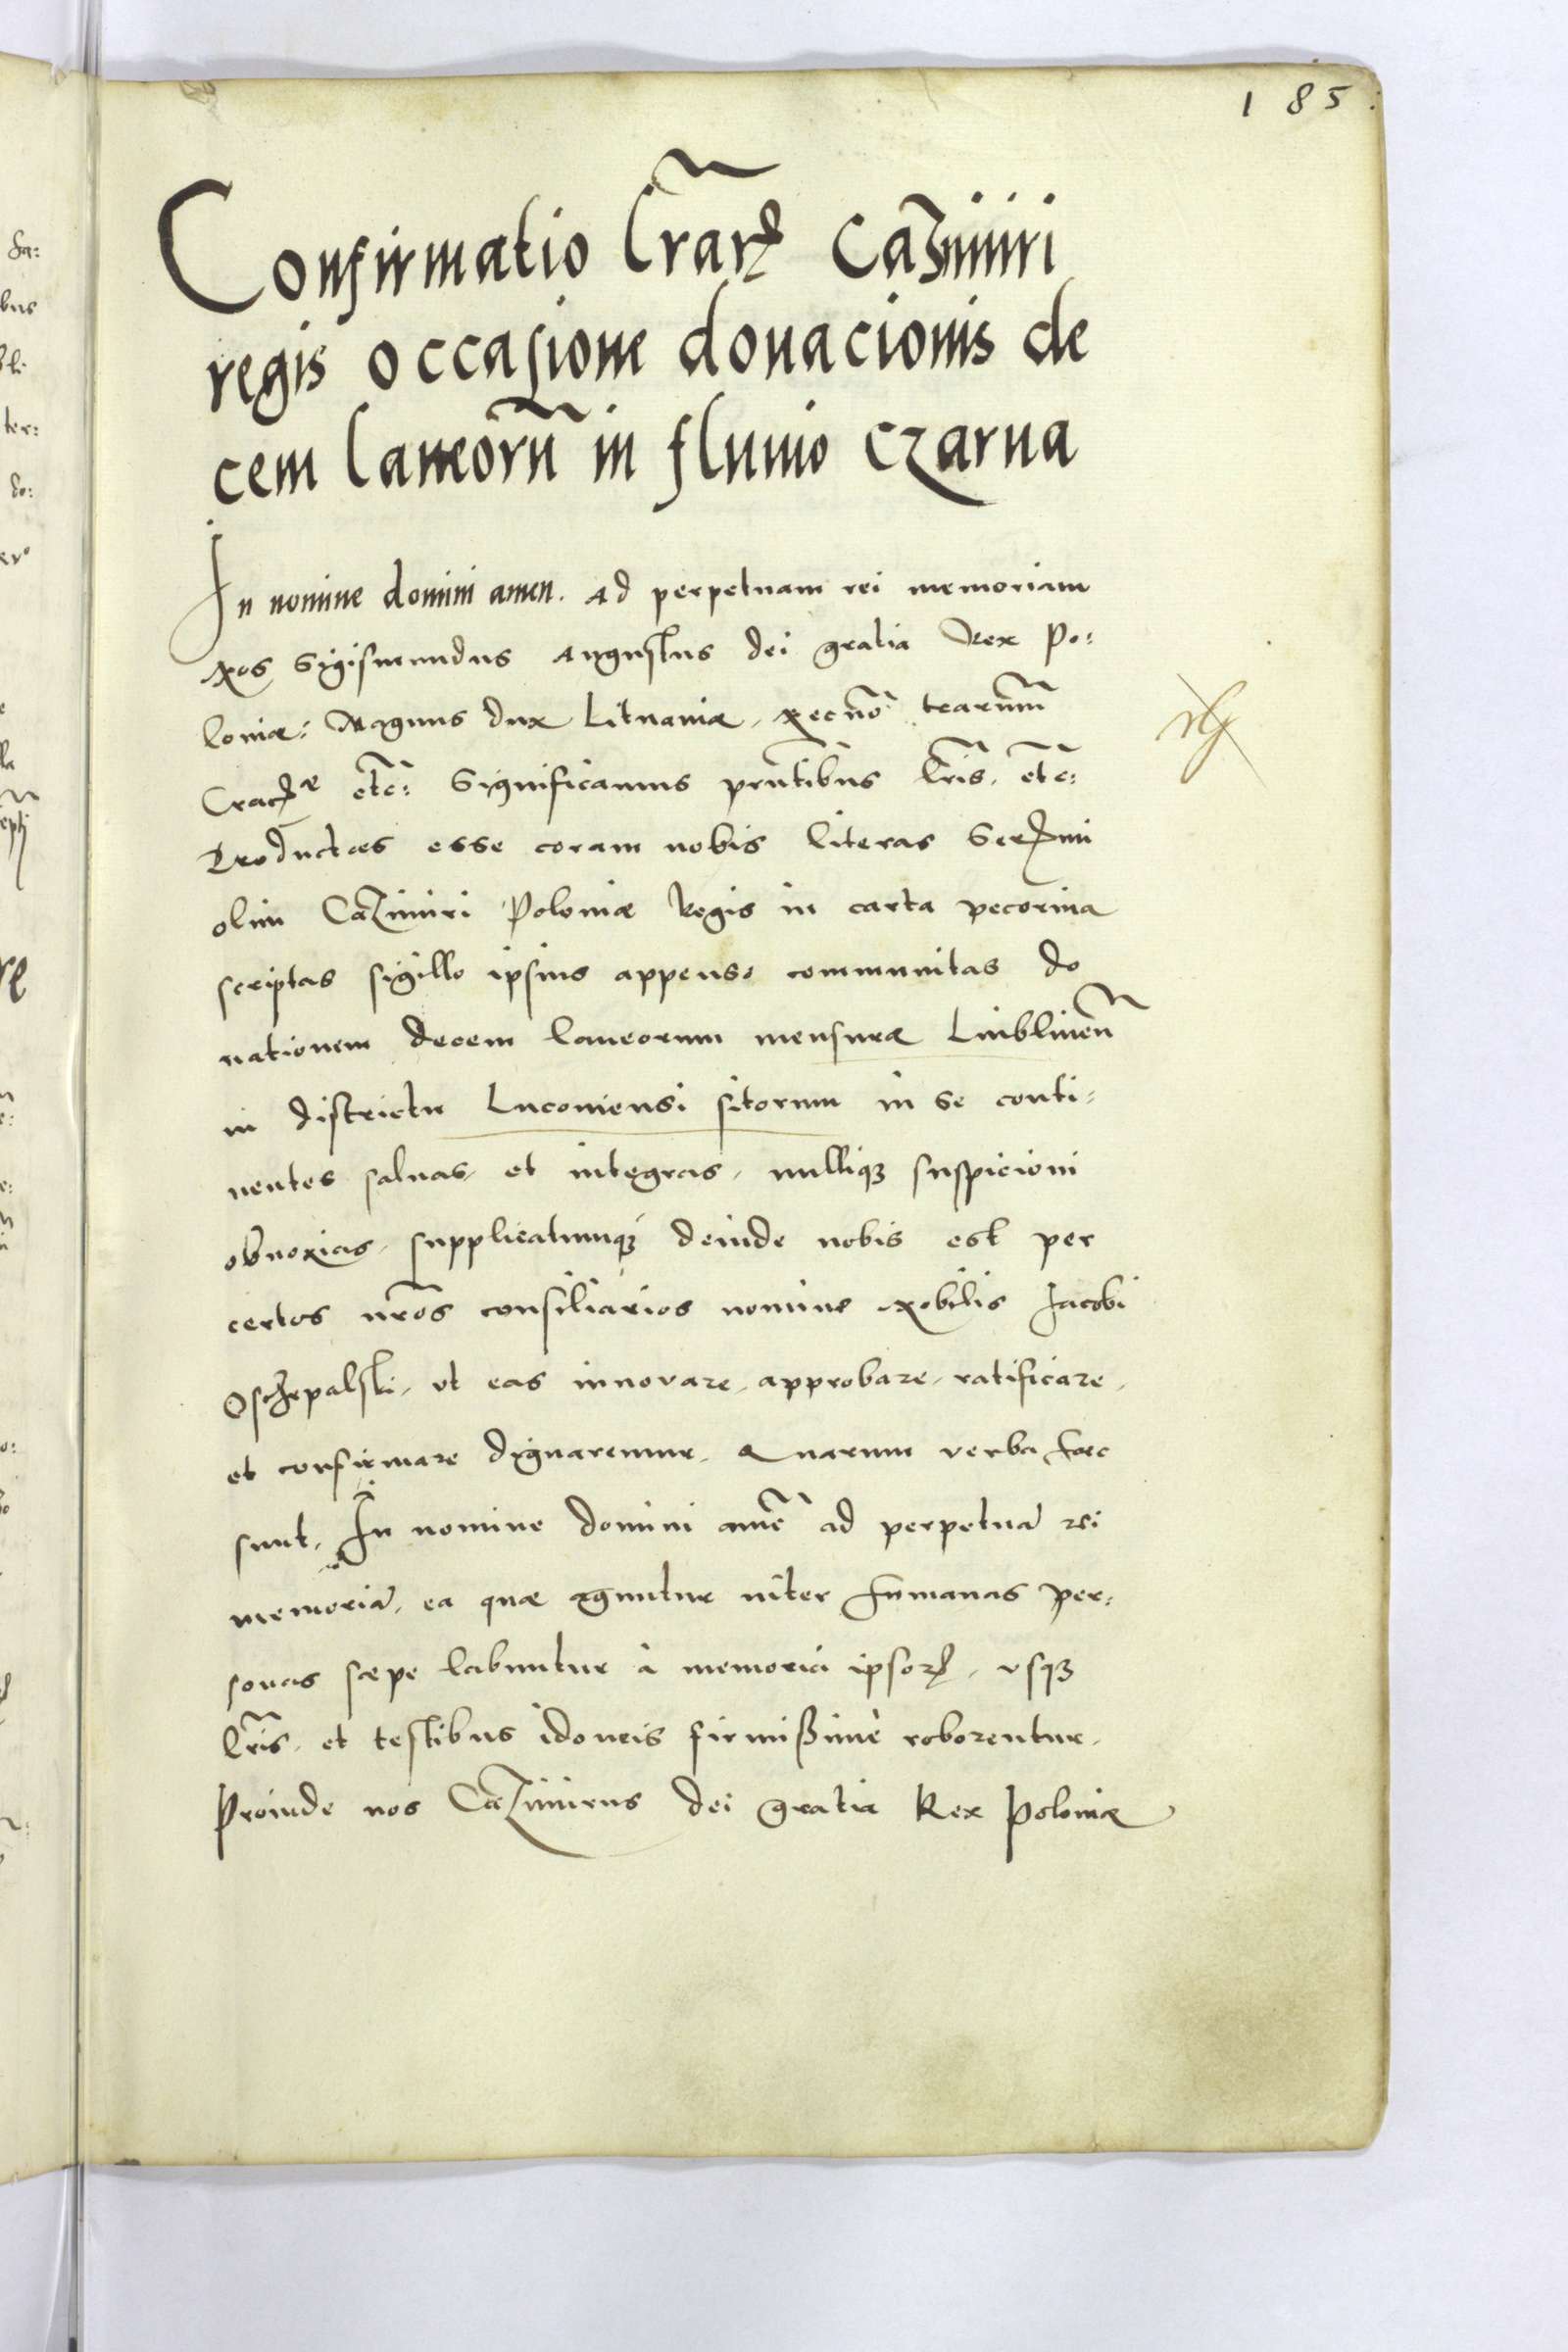 185
Confirmatio lr̃arꝝ Cazimiri
regis occasione donacionis de
cem laneorũ in fluvio czarna
In nomine domini amen. Ad perpetuam rei memoriam
Nos Sigismundus Augustus dei gratia Rex Po:
loniæ: Magnus dux Lituaniæ, Necnõ tearum̃
Cracꝝ etc̃: Significamus prñtibus lr̃is. etc̃:
Productas esse coram nobis literas Serꝝmi
olim Cazimiri Poloniæ Regis in carta pecorina
scriptas sigillo ipsius appenso communitas do
nationem decem laneorum mensuræ Lublineñ
in districtu Luconiensi sitorum in se conti:
nentes saluas, et integras, nulliqꝫ suspicioni
obnoxias, supplicatumqꝫ deinde nobis est per
certos nr̃os consiliarios nomine Nobilis Jacobi
Oschepalski, vt eas innovare, approbare, ratificare,
et confirmare dignaremur. Quarum verba haec
sunt. In nomine domini amẽ ad perpetuã rei
memoriã, ea quæ aguntur inter humanas per:
sonas sæpe labuntur à memoria ipsorꝝ, vsqꝫ
lr̃is, et testibus idoneis firmißimè roborentur.
Proinde nos Cazimirus dei gratia Rex Poloniæ